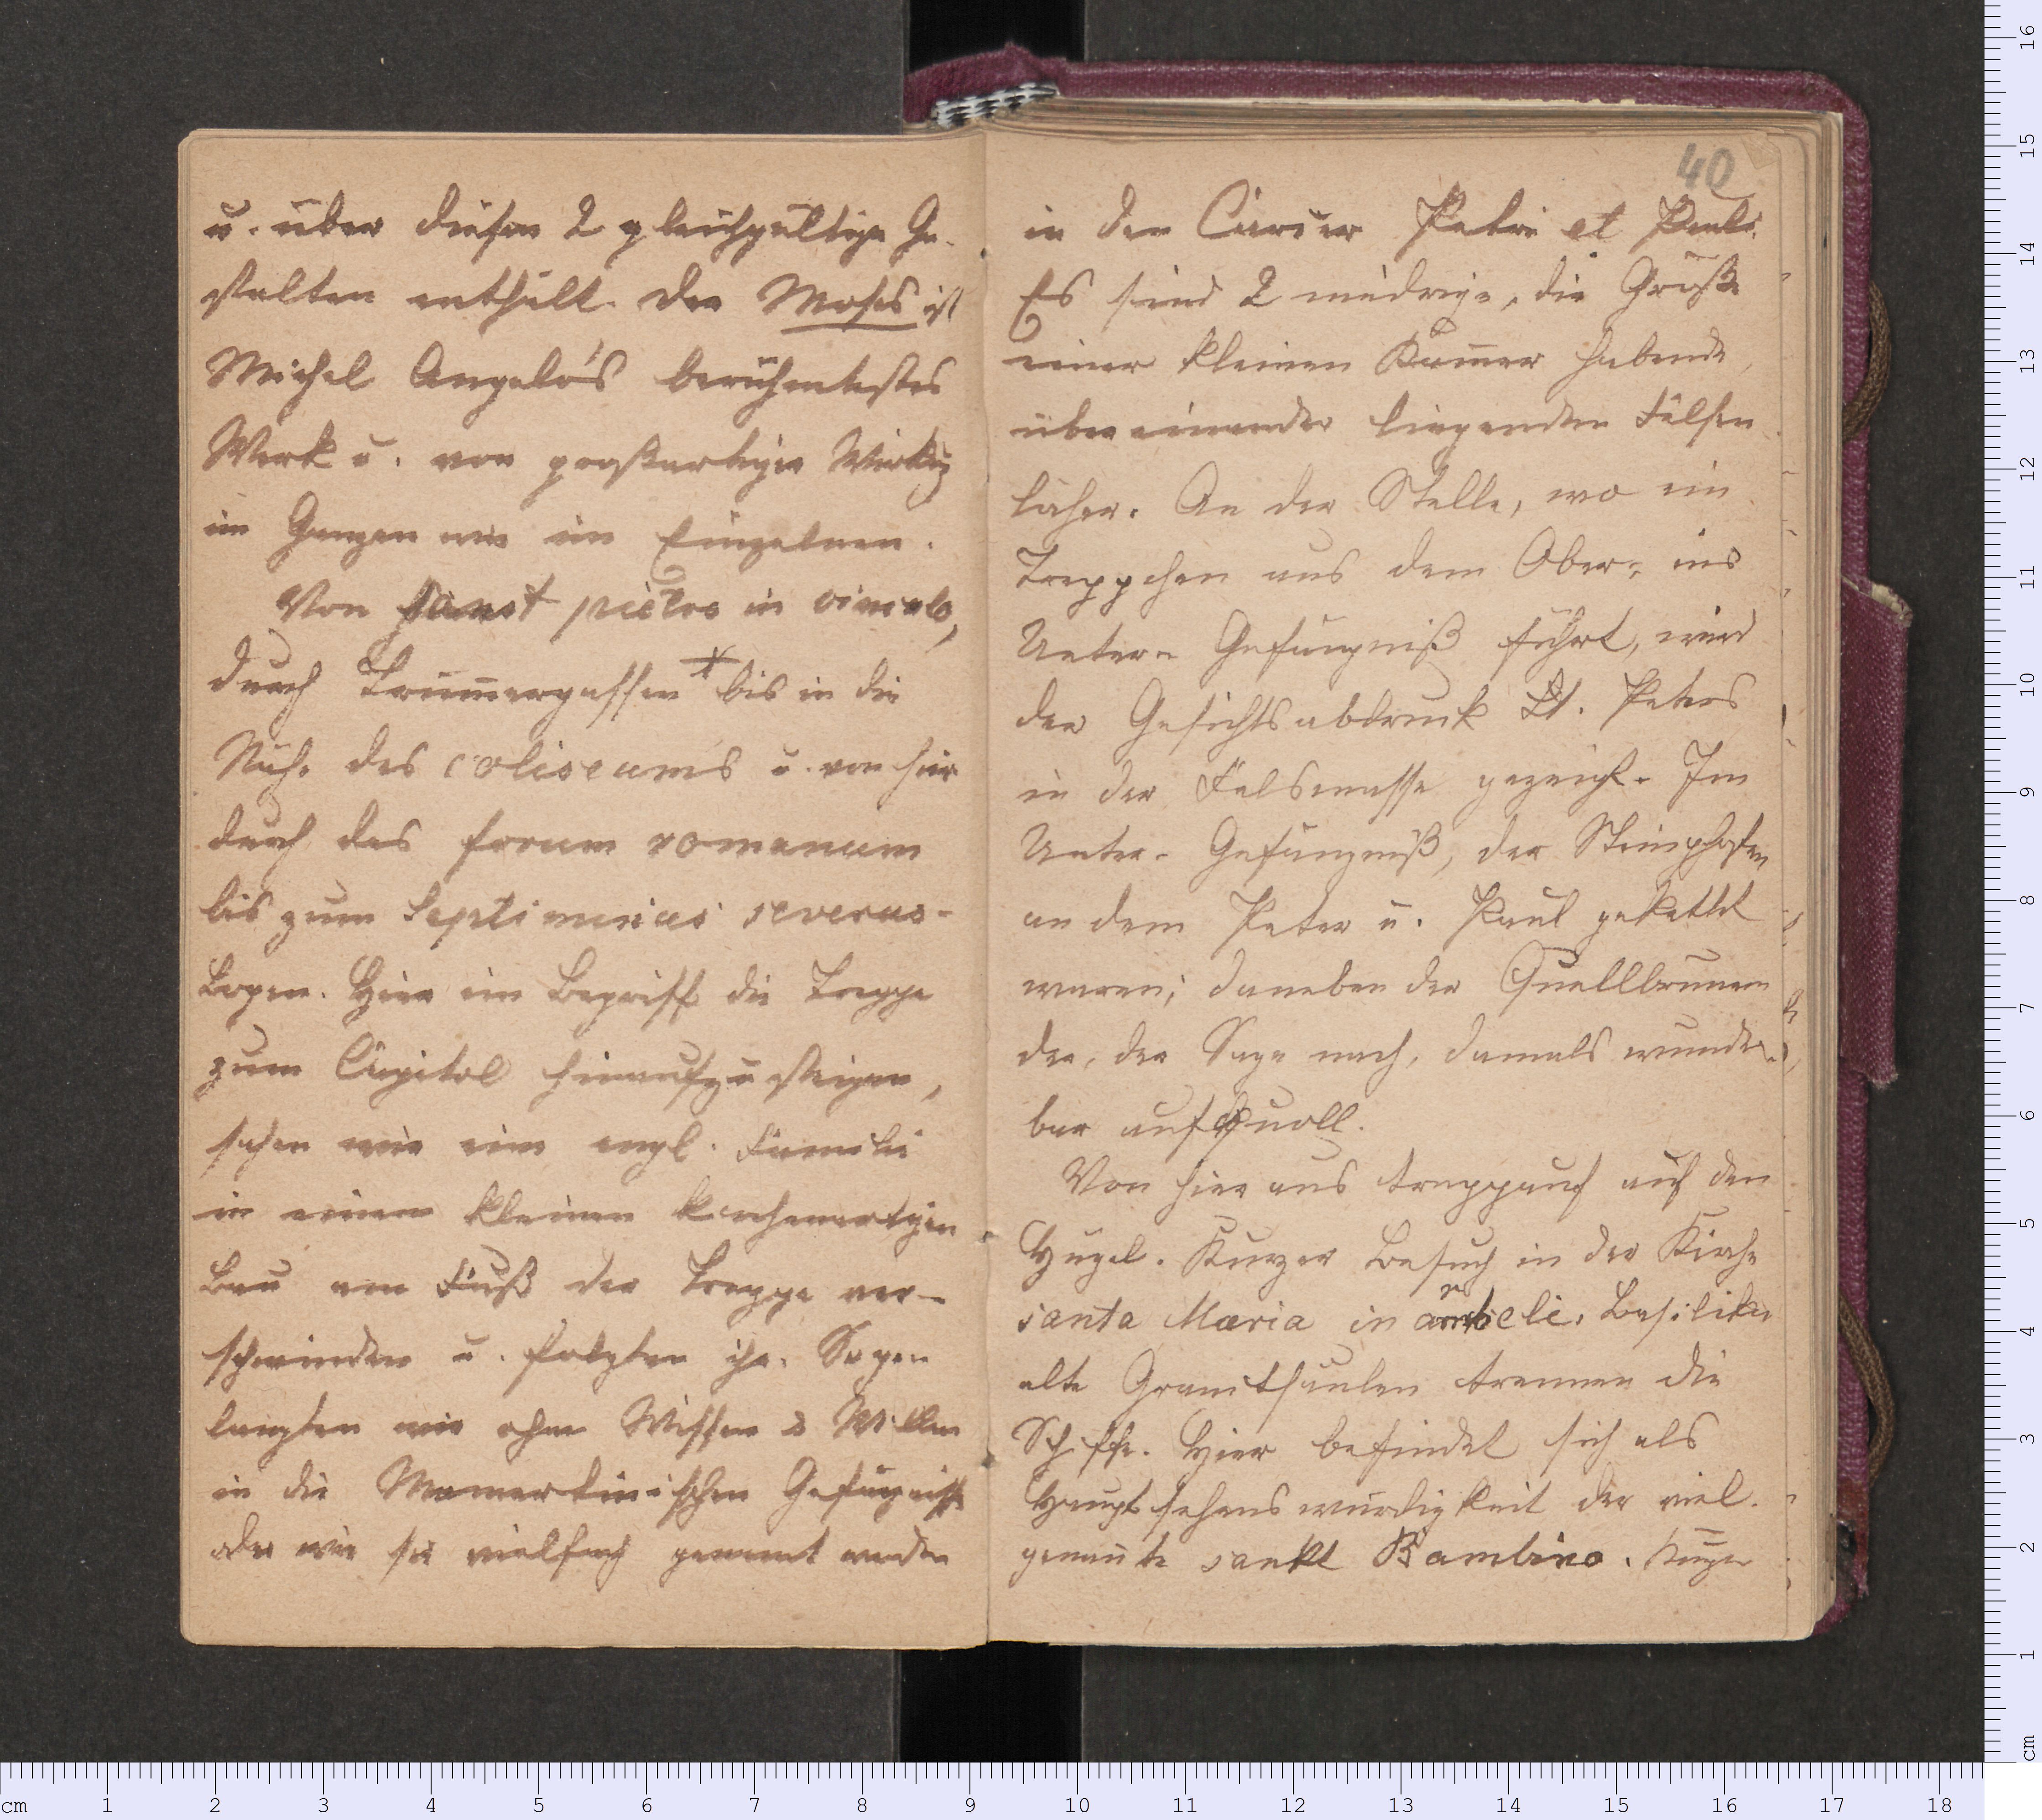 u. über diesen 2 gleichgültige Ge-
stalten enthält. Der Moses ist
Michel Angelo's berühmtestes
Werk u. von großartiger Wirkung
im Ganzen wie im Einzelnen.
Von sanct pietro in vincolo,
durch Trümmergassen bis in die
Nähe des coliseums u. von hier
durch das forum romanum
bis zum Septimius severus-
Bogen. Hier im Begriff die Treppe
zum Capitol hinaufzusteigen,
sahen wir eine engl. Familie
in einem kleinen kirchenartigen
Bau am Fuß der Treppe ver-
schwinden u. folgten ihr. So ge-
langten wir ohne Wissen u Willen
in die Mamertinischen Gefängnisse
oder wie sie vielfach genannt werden
40
in den Carcer Petri et Pauli.
Es sind 2 niedrige, die Größe
einer kleinen Kam̅er habende,
über einander liegenden Felsen
löcher. An der Stelle, wo ein
Treppchen aus dem Ober- ins
Unter- Gefängniß führt, wird
der Gesichtsabdruck St. Peters
in der Felsmasse gezeigt. Im
Unter- Gefängniß, der Steinpfosten
an dem Peter u. Paul gekettet
waren; daneben der Quellbrunnen
der, der Sage nach, damals wunder-
bar aufquoll.
Von hier aus treppauf auf den
Hügel. Kurzer Besuch in der Kirche
santa Maria in araceli. Basilika
alte Granitsäulen trennen die
Schiffe. Hier befindet sich als
Hauptsehenswürdigkeit der viel-
genannte sankt Bambino. Kurzer